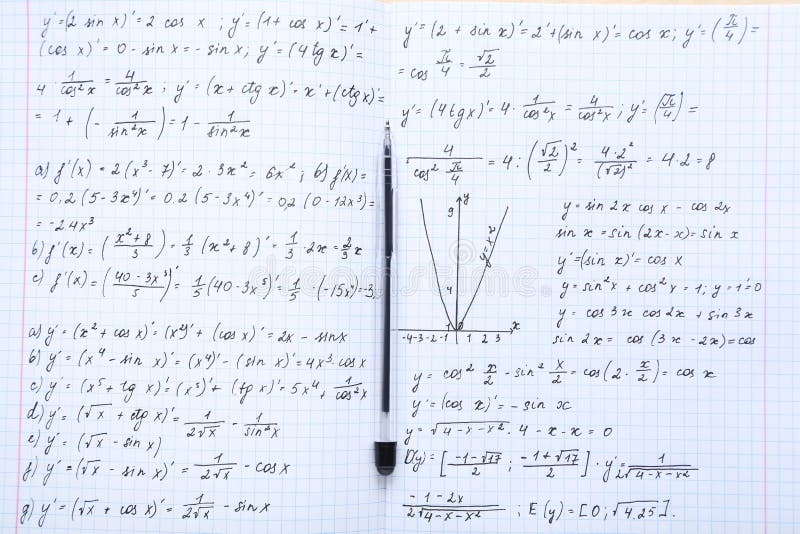 y'=(2 sin x)'=2 cos x ; y'=(1+ cos x)'=1'+
(cos x)'=0-sin x=-sin x; y'=(4tg x)'=
4·1/cos²x=4/cos²x ; y'=(x+ctg x)'=x'+(ctg x)'=
=1+(-1/sin²x)=1-1/sin²x
a) f'(x)=2(x³-7)'=2·3x²=6x²; b) f'(x)=
=0,2(5-3x⁴)'=0.2(5-3x⁴)'=0,2(0-12x³)=
=-2.4x³
b) f'(x)=(x²+8/3)'=1/3(x²+8)'=1/3·2x=2/3x
c) f'(x)=(40-3x⁵/5)'=1/5(40-3x⁵)'=1/5·(-15x⁴)=-3
a) y'=(x²+cos x)'=(x²)'+(cos x)'=2x-sinx
b) y'=(x⁴-sin x)'=(x⁴)'-(sin x)'=4x³·cos x
c) y'=(x⁵+tg x)'=(x⁵)'+(tg x)'=5x⁴+1/cos²x
d) y'=(√x+ctg x)'=1/2√x-1/sin²x
e) y'=(√x-sin x)
f) y'=(√x-sin x)'=1/2√x-cos x
g) y'=(√x+cos x)'=1/2√x-sin x
y'=(2+sin x)'=2'+(sin x)'=cos x; y'=(π/4)=
=cos π/4=√2/2
y'=(4tg x)'=4·1/cos²x=4/cos²x; y'=(π/4)=
4/cos² π/4=4:(√2/2)²=4·2²/(√2)²=4·2=8
y
9
y=x²
4
1
0
-4-3-2-1 1 2 3 x
y=sin 2x cos x-cos 2x
sin x=sin(2x-x)=sin x
y'=(sin x)'=cos x
y=sin²x+cos²x=1; y'=1'=0
y=cos 3x cos2x+sin 3x
sin 2x=cos(3x-2x)=cos
y=cos² x/2-sin² x/2=cos(2·x/2)=cos x
y'=(cos x)'=-sin x
y=√4-x-x². 4-x-x=0
D(y)=[-1-√17/2; -1+√17/2]·y'=1/2√4-x-x²
-1-2x/2√4-x-x²; E(y)=[0;√4.25].